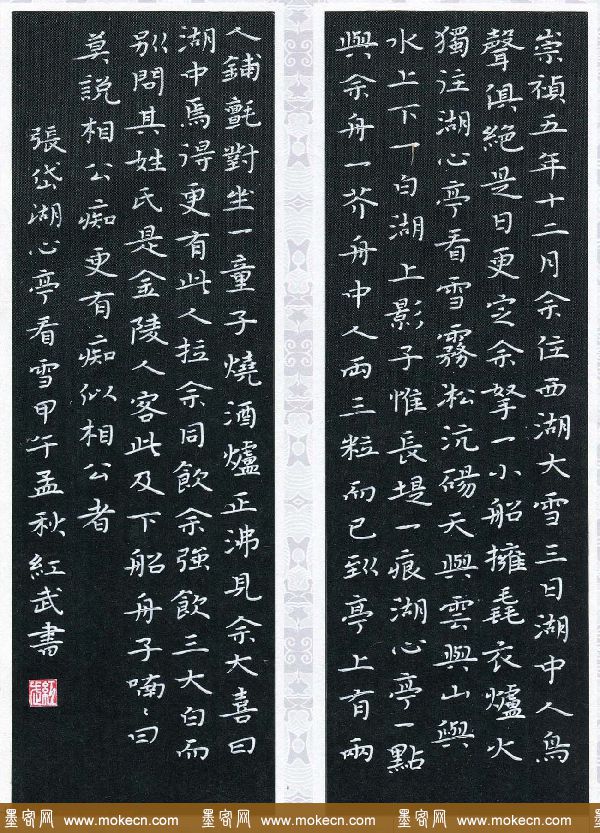 崇禎五年十二月余住西湖大雪三日湖中人鳥
聲俱絕是日更定余拏一小船擁毳衣爐火
獨往湖心亭看雪霧凇沆碭天與雲與山與
水上下一白湖上影子惟長堤一痕湖心亭一點
與余舟一芥舟中人兩三粒而已到亭上有兩
人鋪氈對坐一童子燒酒爐正沸見余大喜曰
湖中焉得更有此人拉余同飲余強飲三大白而
別問其姓氏是金陵人客此及下船舟子喃〻曰
莫說相公痴更有痴似相公者
張岱湖心亭看雪甲午孟秋紅武書
墨客网 www.mokecn.com 墨客网 www.mokecn.com 墨客网 www.mokecn.com 墨客网 www.mokecn.com